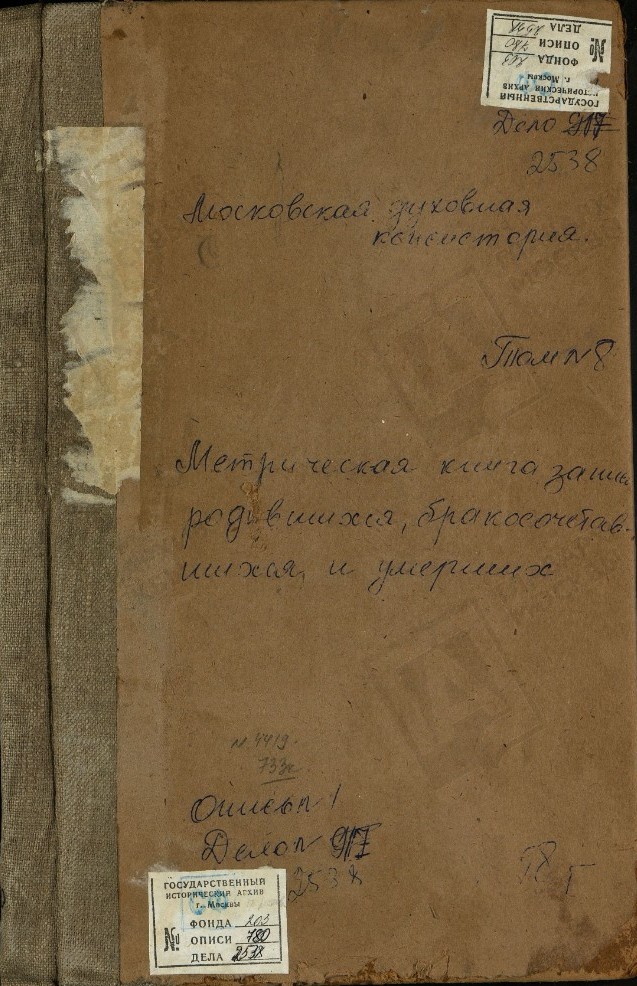 ГОСУДАРСТВЕННЫЙ
ИСТОРИЧЕСКИЙ АРХИВ
г. Москвы
№
ФОНДА 203
ОПИСИ 780
ДЕЛА
Дело 917
2538
Московская духовная
консистория.
Том N 8
Метрическая книга запис
родившихся, бракосочетав-
шихся, и умерших
N 4419
733
Опись N 1
Дело N 917
2538
ГОСУДАРСТВЕННЫЙ
ИСТОРИЧЕСКИЙ АРХИВ
г. Москвы
№
ФОНДА 203
ОПИСИ 780
ДЕЛА 2538